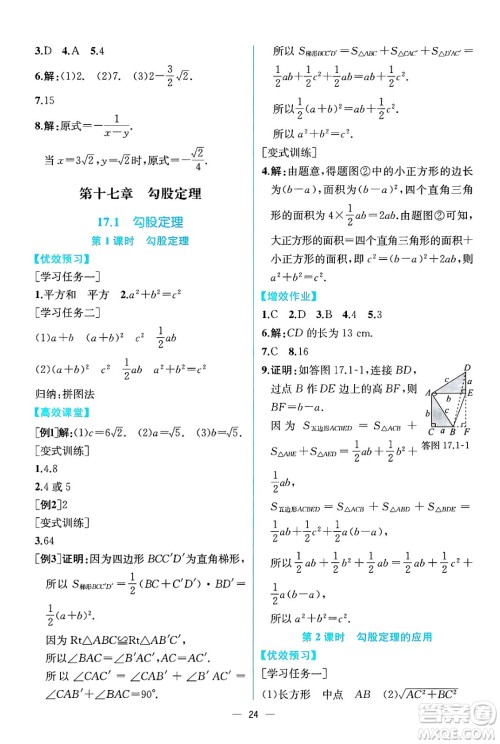 3.D 4.A 5.4
6.解:(1)2. (2)7. (3)2-\frac{3}{2}\sqrt{2}.
7.15
8.解:原式=-\frac{1}{x-y}.
当 x=3\sqrt{2},y=\sqrt{2}时,原式=-\frac{\sqrt{2}}{4}.
第十七章 勾股定理
17.1 勾股定理
第1课时 勾股定理
【优效预习】
[学习任务一]
1.平方和 平方 2.a²+b²=c²
[学习任务二]
(1)a+b \frac{1}{2}ab c
(2)(a+b)² \frac{1}{2}ab c² a²+b²=c²
归纳:拼图法
【高效课堂】
[例1]解:(1)c=6\sqrt{2}. (2)b=5. (3)b=\sqrt{5}.
[变式训练]
1.4.8
2.4或5
[例2]2
[变式训练]
3.64
[例3]证明:因为四边形BCC′D′为直角梯形,
所以S梯形BCC′D′=\frac{1}{2}(BC+C′D′)·BD′=
\frac{1}{2}(a+b)².
因为Rt△ABC≌Rt△AB′C′,
所以∠BAC=∠B′AC′.
所以∠CAC′=∠CAB′+∠B′AC′=
∠CAB′+∠BAC=90°.
所以S梯形BCC′D′=S△ABC+S△CAC′+S△D′AC′=
\frac{1}{2}ab+\frac{1}{2}c²+\frac{1}{2}ab=\frac{1}{2}c²+ab.
所以\frac{1}{2}(a+b)²=\frac{1}{2}c²+ab.
所以a²+b²=c².
[变式训练]
4.解:由题意,得题图②中的小正方形的边
长为(b-a),面积为(b-a)²,四个直角三角
形的面积为4×\frac{1}{2}ab,大正方形的面积为c².
大正方形的面积=四个直角三角形的面积+
小正方形的面积,即c²=4×\frac{1}{2}ab+(b-a)²,得
a²+b²=c².
【增效作业】
1.C 2.D 3.B 4.4 5.3
6.解:CD的长为13 cm.
7.C 8.16
9.证明:如答图17.1-1,连接BD,
过点B作DE边上的高BF,则
BF=b-a.
因为S五边形ACBED=S△ACB+S
△ABE+S△AED=\frac{1}{2}ab+\frac{1}{2}b²+\frac{1}{2}ab,
答图17.1-1
S五边形ACBED=S△ACB+S△ABD+S△BDE=
\frac{1}{2}ab+\frac{1}{2}c²+\frac{1}{2}a(b-a),
所以\frac{1}{2}ab+\frac{1}{2}b²+\frac{1}{2}ab=\frac{1}{2}ab+\frac{1}{2}c²+
\frac{1}{2}a(b-a).
所以a²+b²=c².
第2课时 勾股定理的应用
【优效预习】
[学习任务一]
(1)长方形 中点 AB (2)\sqrt{AC²+BC²}
24